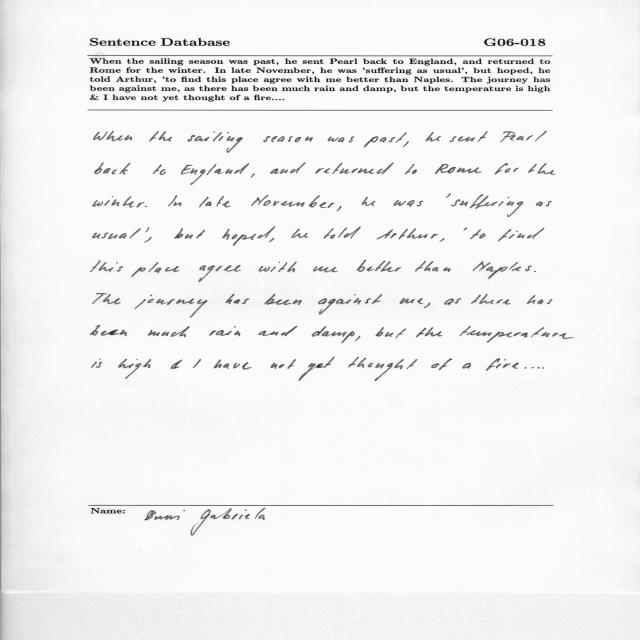 Sentence Database G06-018
When the sailing season was past, he sent Pearl back to England, and returned to
Rome for the winter. In late November, he was 'suffering as usual', but hoped, he
told Arthur, 'to find this place agree with me better than Naples. The journey has
been against me, as there has been much rain and damp, but the temperature is high
& I have not yet thought of a fire....
When the sailing season was past, he sent Pearl
back to England, and returned to Rome for the
winter. In late November, he was 'suffering as
usual', but hoped, he told Arthur, 'to find
this place agree with me better than Naples.
The journey has been against me, as there has
been much rain and damp, but the temperature
is high & I have not yet thought of a fire....
Name: Gabriela